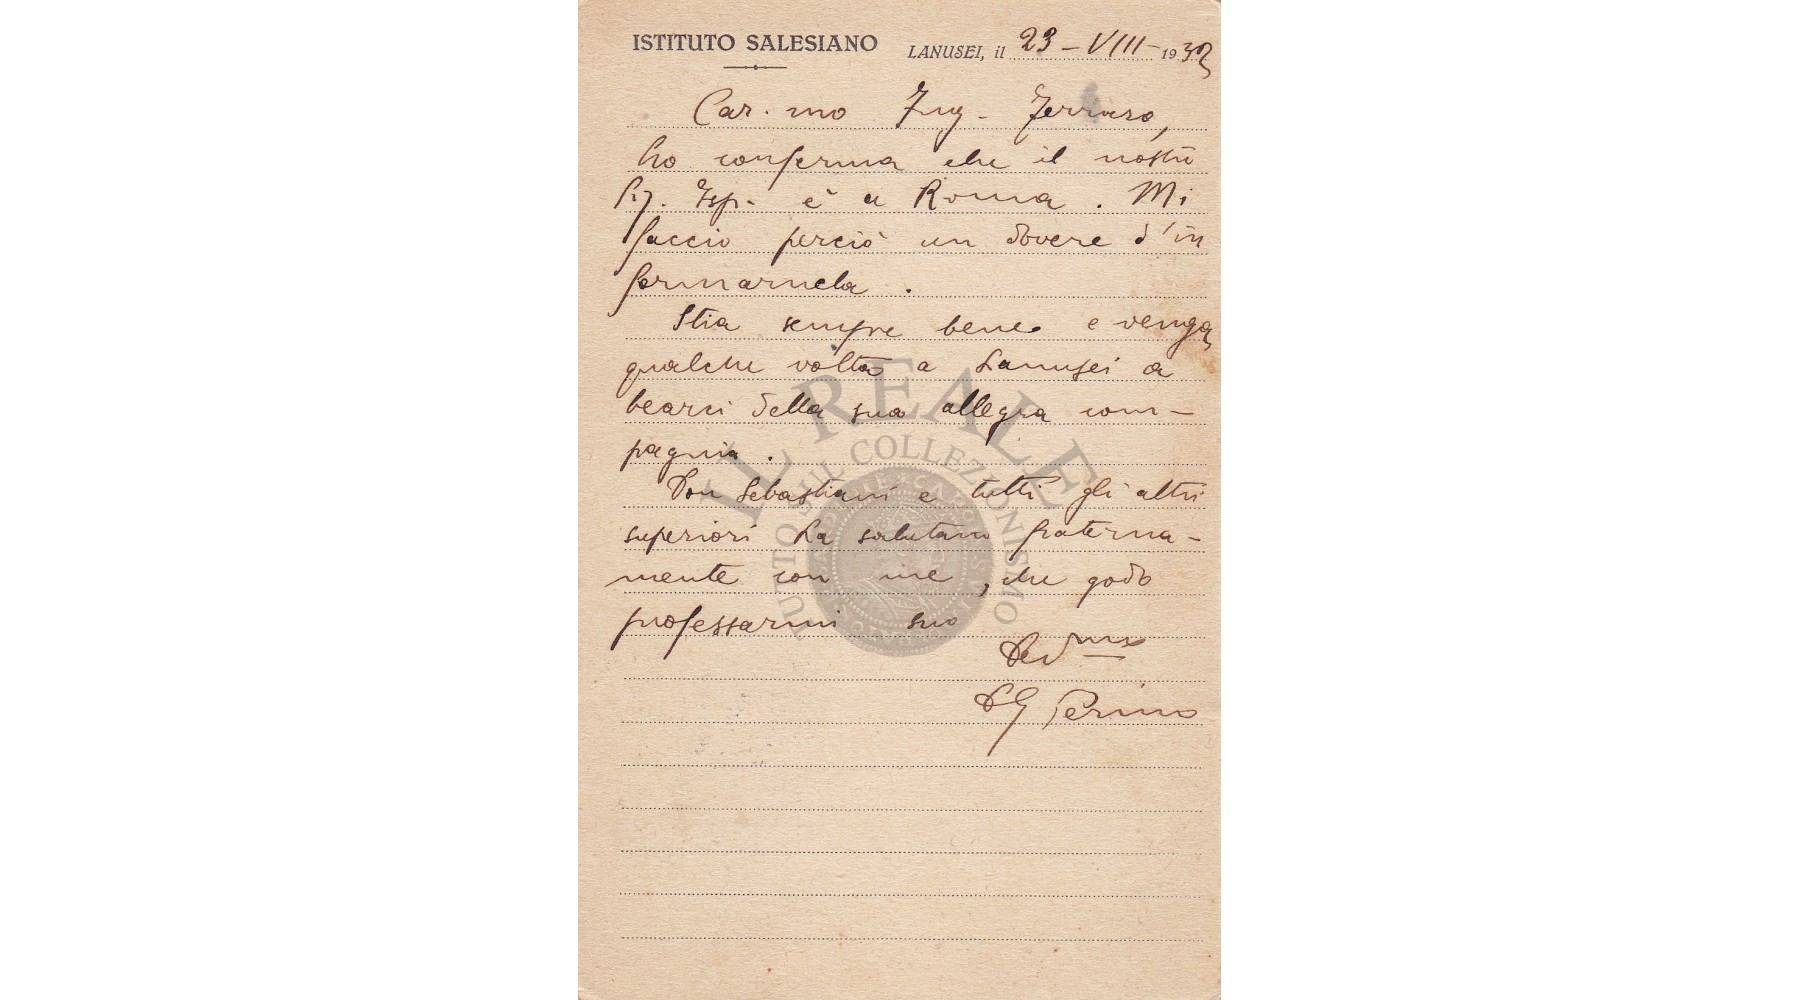 ISTITUTO SALESIANO
LANUSEI, il 23-VIII-1932
Car.mo Ing. Ferraro,
ho conferma che il nostro
Sig. Isp. è a Roma. Mi
faccio perciò un dovere d'in
formarnela.
Stia sempre bene e venga
qualche volta a Lanusei a
bearci della sua allegra com-
pagnia.
Don Sebastiani e tutti gli altri
superiori La salutano fraterna-
mente con me, che godo
professarmi suo
Dev.mo
Perino
IL REALE
TUTTO SUL COLLEZIONISMO